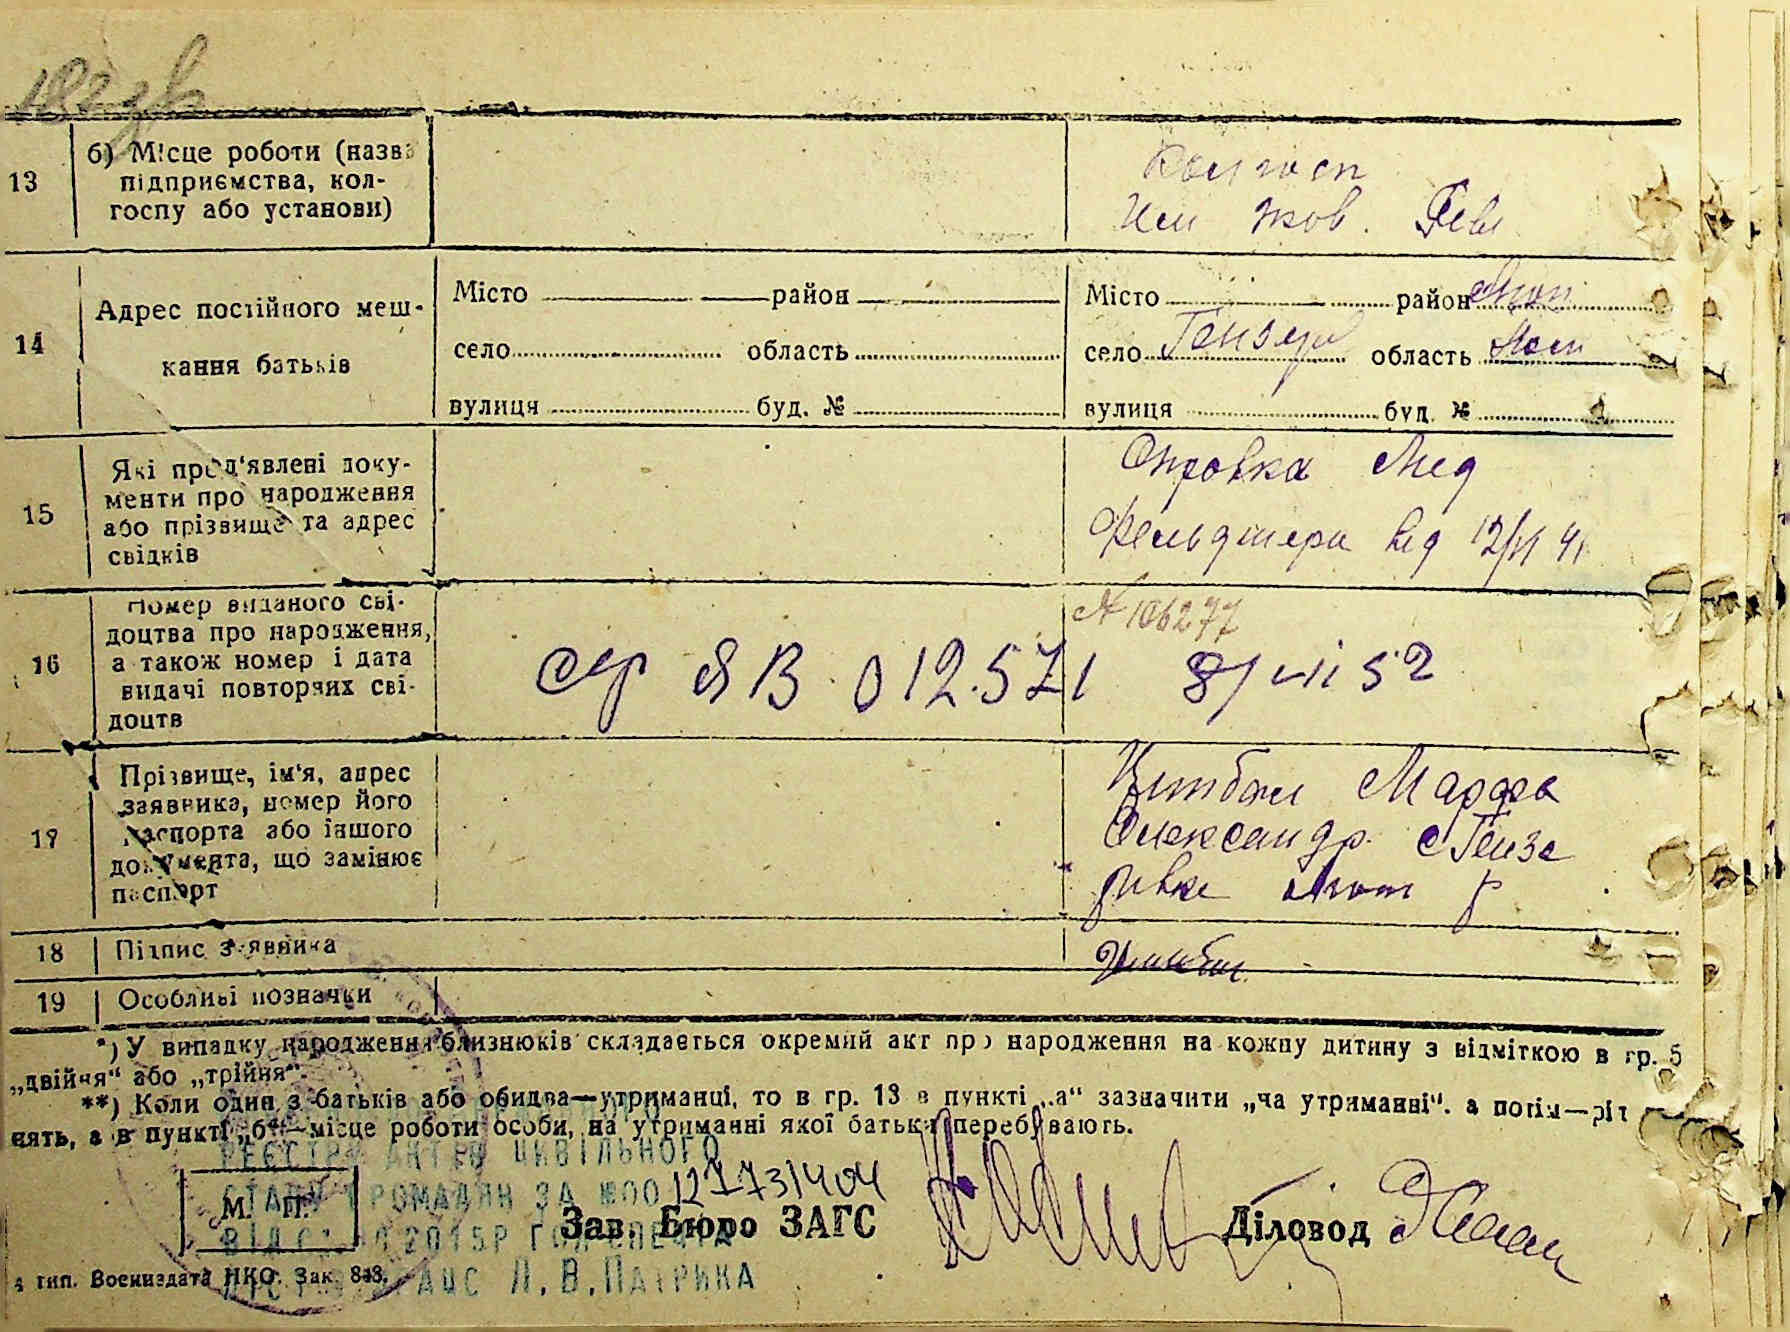 182 зв
13
б) Місце роботи (назва
підприємства, кол-
госпу або установи)
Колгосп
Им жов. Рев
14
Адрес постійного меш-
кання батьків
Місто район
село область
вулиця буд. №
Місто район
село область
вулиця буд. № 1
15
Які пред'явлені доку-
менти про народження
або прізвище та адрес
свідків
Справка Мед
Фельдшера від 12/VI 41
16
Номер виданого сві-
доцтва про народження,
а також номер і дата
видачі повторних сві-
доцтв
№ 106277
сер ЯВ 012571 8/VII 52
17
Прізвище, ім'я, адрес
заявника, номер його
паспорта або іншого
документа, що замінює
паспорт
Цимбал Марфа
Олександр. с Гензе
рівка р
18
Підпис заявника
Цимбал
19
Особливі позначки
*) У випадку народження близнюків складається окремий акт про народження на кожну дитину з відміткою в гр. 5
„двійня“ або „трійня“.
**) Коли один з батьків або обидва—утриманці, то в гр. 13 в пункті „а“ зазначити „на утриманні“, а потім—ріт
нять, а в пункті „б“—місце роботи особи, на утриманні якої батьки перебувають.
РЕЄСТРІ АКТІВ ЦИВІЛЬНОГО
СТАНУ ГРОМАДЯН ЗА №00 127731404
ВІД 2015Р ГОЛ СПЕЦ
Л.В.ПАТРИКА
М. П.
Зав. Бюро ЗАГС
Діловод
4 тип. Воениздата НКО. Зак. 843.